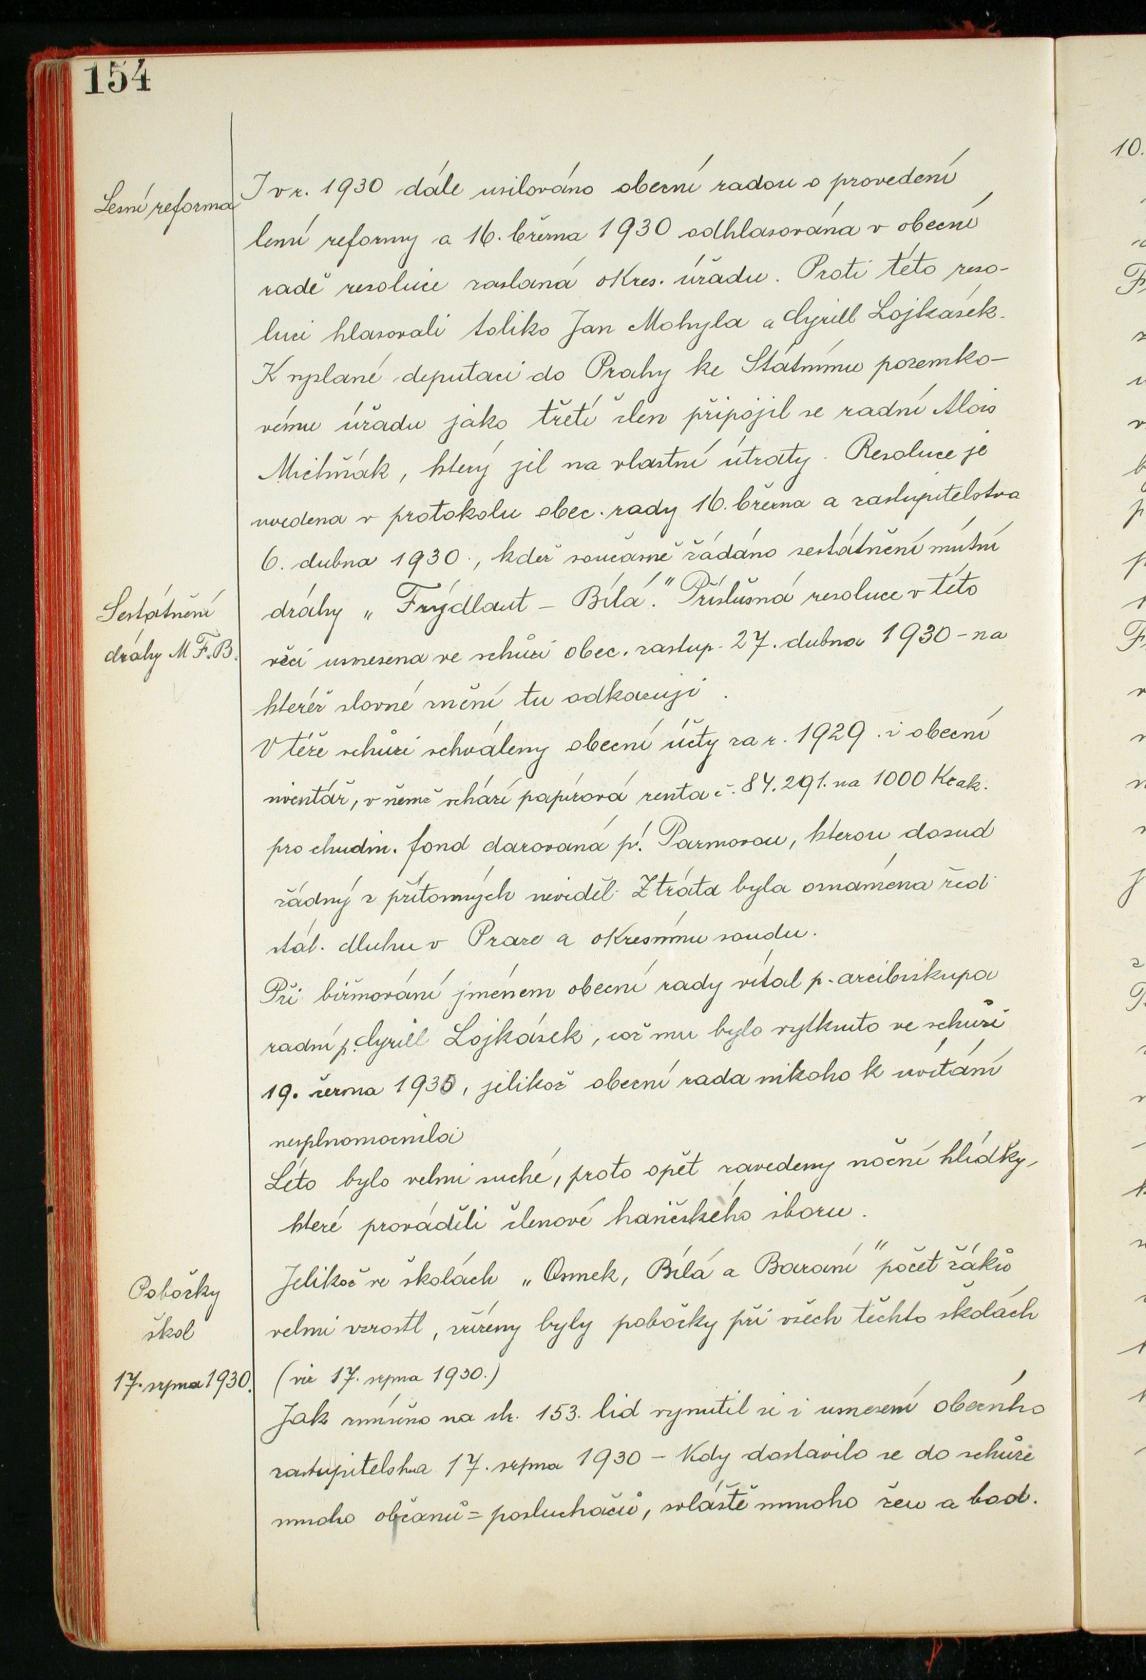 154
Lesní reforma
I v r. 1930 dále usilováno obecní radou o provedení
lesní reformy a 16. března 1930 odhlasována v obecní
radě resoluce zaslaná okres. úřadu. Proti této reso-
luci hlasovali toliko Jan Mohyla a Cyrill Lojkásek.
K vyslané deputaci do Prahy ke Státnímu pozemko-
vému úřadu jako třetí člen připojil se radní Alois
Michňák, který jel na vlastní útraty. Resoluce je
uvedena v protokolu obec. rady 16. března a zastupitelstva
6. dubna 1930., kdež současně žádáno sestátnění místní
Sestátnění
dráhy M F.B.
dráhy „Frýdlant – Bílá." Příslušná resoluce v této
věci usnesena ve schůzi obec. zastup. 27. dubna 1930 – na
kteréž slovné znění tu odkazuji.
V téže schůzi schváleny obecní účty za r. 1929. i obecní
inventář, v němž schází papírová renta č. 84.291. na 1000 Kč ak.
pro chudin. fond darovaná pí. Parmovou, kterou dosud
žádný z přítomných neviděl. Ztráta byla oznámena řed.
stát. dluhu v Praze a okresnímu soudu.
Při biřmování jménem obecní rady vítal p. arcibiskupa
radní p. Cyrill Lojkásek, což mu bylo vytknuto ve schůzi
19. června 1930, jelikož obecní rada nikoho k uvítání
nesplnomocnila
Léto bylo velmi suché, proto opět zavedeny noční hlídky,
které prováděli členové hasičského sboru.
Pobočky
škol
17. srpna 1930.
Jelikož ve školách „Osmek, Bílá a Baraní" počet žáků
velmi vzrostl, zřízeny byly pobočky při všech těchto školách
(viz 17. srpna 1930.)
Jak zmíněno na str. 153. lid vynutil si i usnesení obecního
zastupitelstva 17. srpna 1930 – kdy dostavilo se do schůze
mnoho občanů = posluchačů, zvláště mnoho žen a bod.
10.